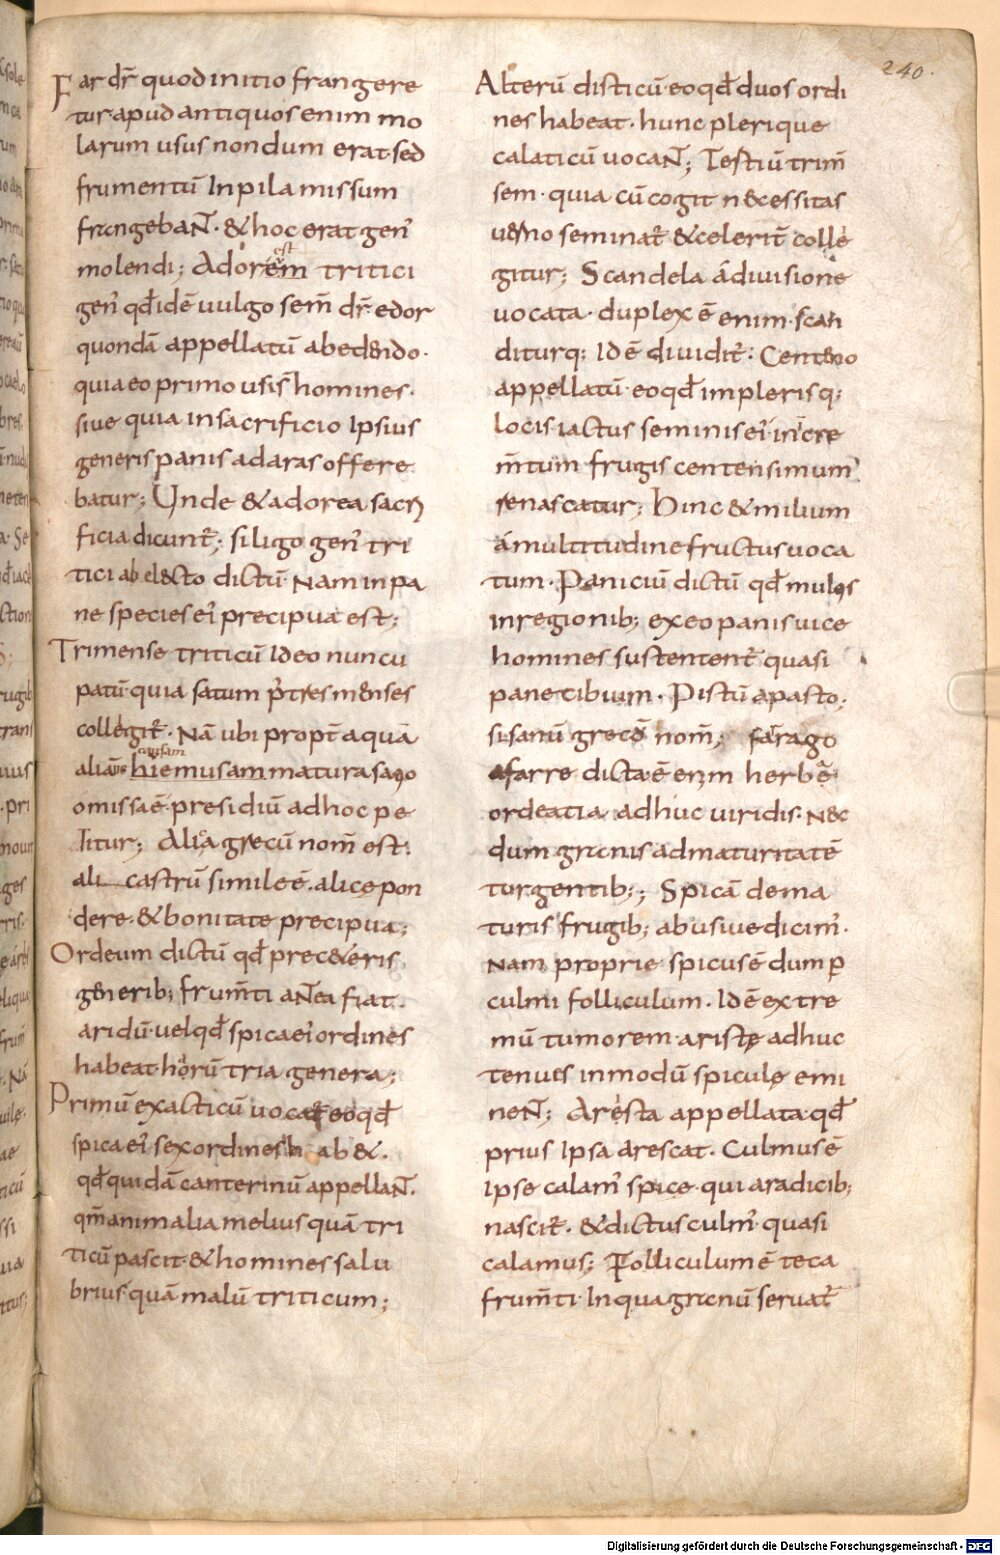 240.
Far dr̄ quod initio frangere
tur apud antiquos enim mo
larum usus nondum erat sed
frumentū In pila missum
frangebaNT̄. & hoc erat gen᾽
molendi; Adorem est tritici
gen᾽ qđ idē uulgo sem̄ dr̄ edor
quondā appellatū ab edendo.
quia eo primo usi s̄ homines.
siue quia in sacrificio Ipsius
generis panis ad aras offere
batur; Unde & adorea sacri
ficia dicunt᾽; siligo gen᾽ tri
tici ab electo dictū Nam in pa
ne species ei᾽ precipua est;
Trimense triticū Ideo nuncu
patū quia satum p᾽ tres menses
collegit᾽. Nā ubi propt̄ aquā
aliam causam hiemusam matura satio
omissa ē presidiū ad hoc pe
titur; Alica grecū nom̄ est.
ali castrū simile ē. alice pon
dere. & bonitate precipua;
Ordeum dictū qđ pre ceteris
generib; frum̄ti aNTea fiat.
aridū. uel qđ spica ei᾽ ordines
habeat. horū tria genera;
Primū exacticū uocat᾽ eo qđ
spica ei᾽ sex ordines hab&.
qđ quidā canterinū appellaNT̄.
qm̄ animalia melius quā tri
ticū pascit & homines salu
brius quā malū triticum;
Alterū disticū eo qđ duos ordi
nes habeat. hunc plerique
calaticū uocaNT̄; Testiū trim̄
sem. quia cū cogit necessitas
uerno seminat᾽ & celerit̄ colle
gitur; Scandela á diuisione
uocata. duplex ē enim. scan
diturq; Idē diuidit᾽: Centeno
appellatū. eo qđ im plerisq;
locis iactus seminis ei᾽ in cre
m̄tum frugis centensimum
renascatur; Hinc & milium
á multitudine fructus uoca
tum. Paniciū dictū qđ multis
in regionib; ex eo panis uice
homines sustentent᾽ quasi
pane cibium. Pistū a pasto.
sisanū grecō nom̄; farrago
a farre dicta ē enim herbā
ordeatia adhuc uiridis. Nec
dum granis ad maturitatē
turgentib;; Spicā de ma
turis frugib; abusiue dicim᾽.
Nam proprie spicus ē dum p̱
culmi folliculum. Idē extre
mū tumorem aristę adhuc
tenues in modū spiculę emi
neNT̄; Aresta appellata qđ
prius Ipsa arescat. Culmus ē
Ipse calam᾽ spice. qui a radicib;
nascit᾽. & dictus culm᾽ quasi
calamus; Folliculum ē teca
frum̄ti In qua granū seruat᾽
Digitalisierung gefördert durch die Deutsche Forschungsgemeinschaft - DFG